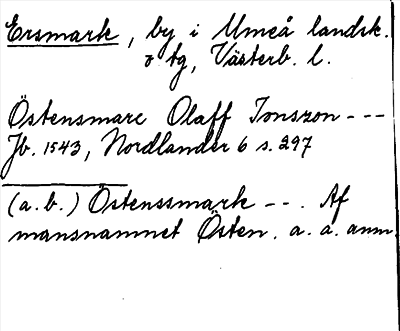 Ersmark, by i Umeå landsk.
o tg, Västerb. l.
Östensmarc Olaff Jonszon ---
Jb. 1543, Nordlander 6 s. 297
(a. b.) Östenssmark --. Af
mansnamnet Östen. a. a. anm.